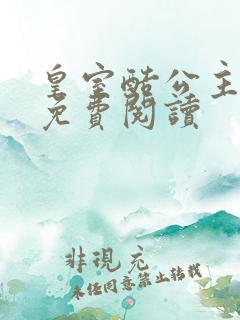 皇室酷公主
免費閱讀
非現充
未經同意禁止轉載